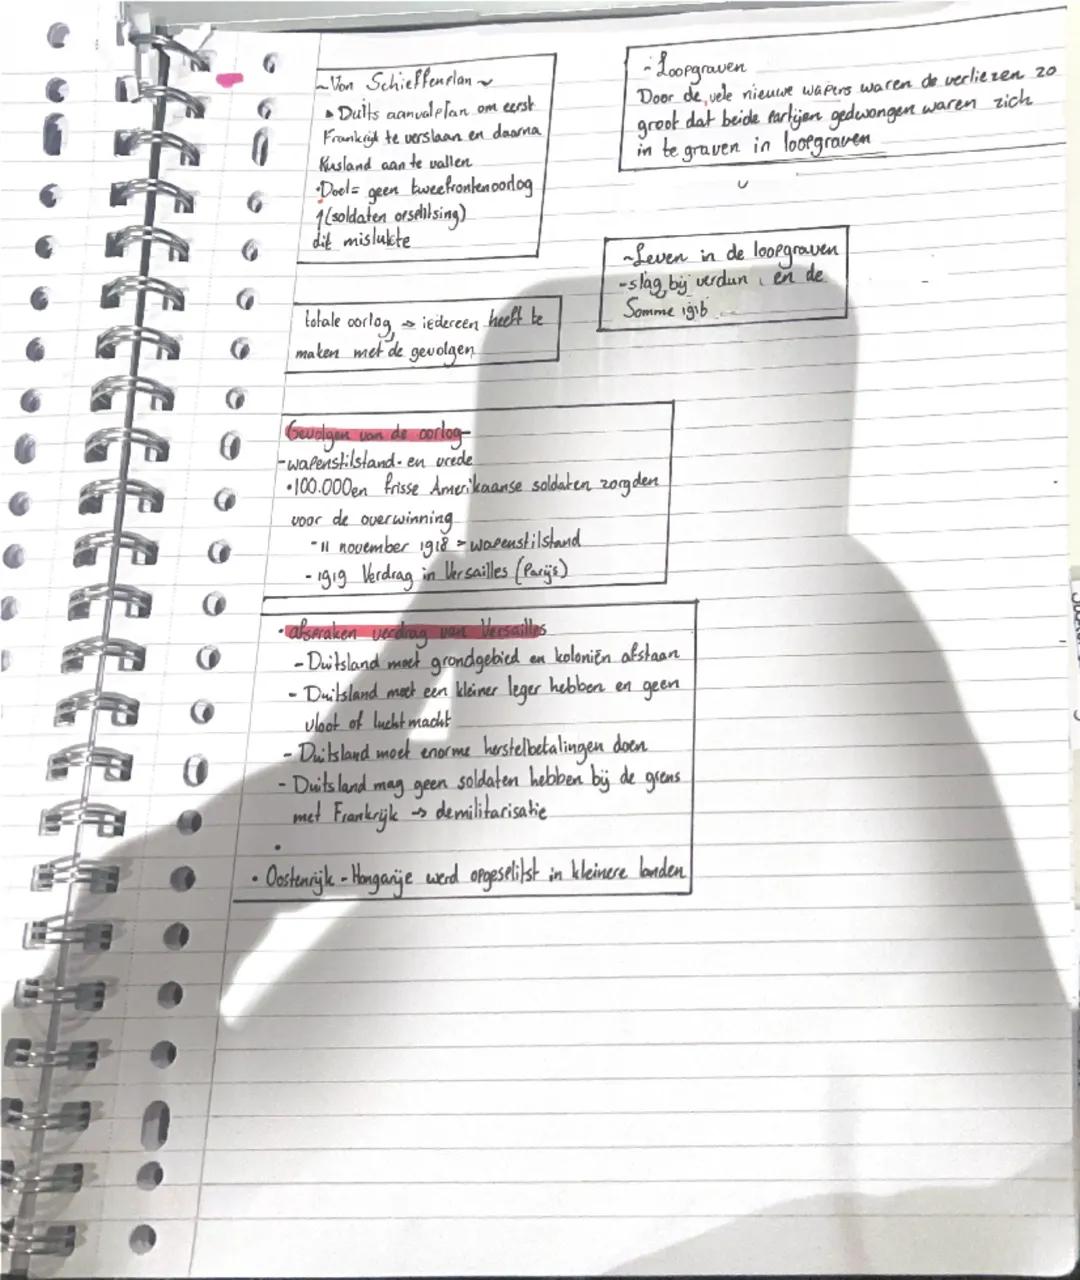 ~Von Schieffenplan~
▸ Duits aanvalplan om eerst
Frankrijk te verslaan en daarna
Rusland aan te vallen
•Doel= geen tweefrontenoorlog
↑(soldaten opselitsing)
dit mislukte
- Loopgraven
Door de vele nieuwe wapens waren de verliezen zo
groot dat beide Partijen gedwongen waren zich
in te graven in loopgraven
~Leven in de loopgraven
-slag bij verdun en de
Somme 1916
totale oorlog → iedereen heeft te
maken met de gevolgen
Gevolgen van de oorlog
-wapenstilstand. en vrede
•100.000en frisse Amerikaanse soldaten zorgden
voor de overwinning
- 11 november 1918 = wapenstilstand
- 1919 Verdrag in Versailles (Parijs)
• afspraken verdrag van Versailles
- Duitsland moet grondgebied en koloniën afstaan
- Duitsland moet een kleiner leger hebben en geen
vloot of luchtmacht
- Duitsland moet enorme herstelbetalingen doen
- Duitsland mag geen soldaten hebben bij de grens
met Frankrijk → demilitarisatie
•
• Oostenrijk - Hongarije werd opgeselitst in kleinere landen